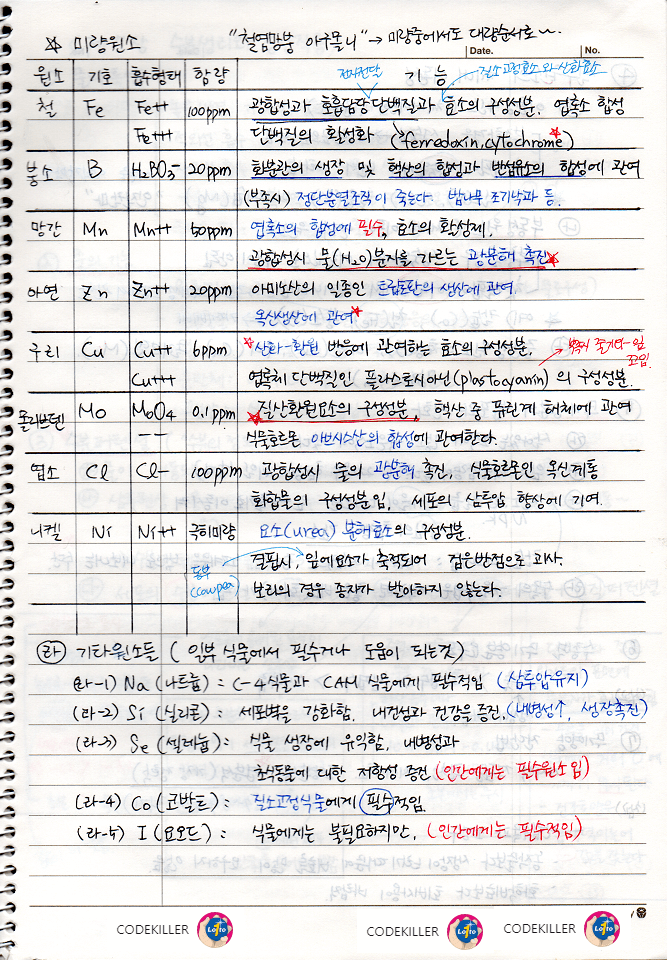 ☆ 미량원소 "철염망붕 아구몰니" → 미량중에서도 대량순서로~.
Date. No.
전자전달 질소고정효소와 산화효소
원소 기호 흡수형태 함량 기능
철 Fe Fe++ 100ppm 광합성과 호흡담당 단백질과 효소의 구성성분. 엽록소 합성
Fe+++ 단백질의 활성화 (ferredoxin, cytochrome)
붕소 B H2BO3- 20ppm 화분관의 생장 및 핵산의 합성과 반섬유소의 합성에 관여
(부족시) 정단분열조직이 죽는다. 밤나무 조기낙과 등.
망간 Mn Mn++ 50ppm 엽록소의 합성에 필수, 효소의 활성제.
광합성시 물(H2O)분자를 가르는 광분해 촉진
아연 Zn Zn++ 20ppm 아미노산의 일종인 트립토판의 생산에 관여.
옥신생산에 관여
구리 Cu Cu++ 6ppm 산화-환원 반응에 관여하는 효소의 구성성분.
Cu+++ 엽록체 단백질인 플라스토시아닌(plastocyanin)의 구성성분.
몰리브덴 Mo MoO4 0.1ppm 질산환원요소의 구성성분, 핵산 중 퓨린계 해체에 관여
-- 식물호르몬 아브시스산의 합성에 관여한다.
염소 Cl Cl- 100ppm 광합성시 물의 광분해 촉진, 식물호르몬인 옥신계통
화합물의 구성성분임, 세포의 삼투압 향상에 기여.
니켈 Ni Ni++ 극히미량 요소(urea) 분해효소의 구성성분.
동부 (cowpea) 결핍시, 잎에 요소가 축적되어 검은반점으로 괴사.
보리의 경우 종자가 발아하지 않는다.
㉣ 기타원소들 (일부 식물에서 필수거나 도움이 되는것)
(라-1) Na (나트륨) : C-4식물과 CAM 식물에게 필수적임 (삼투압유지)
(라-2) Si (실리콘) : 세포벽을 강화함, 내건성과 건강을 증진, (내병성↑, 생장촉진)
(라-3) Se (셀레늄) : 식물 생장에 유익함, 내병성과
초식동물에 대한 저항성 증진 (인간에게는 필수원소임)
(라-4) Co (코발트) : 질소고정식물에게 필수적임.
(라-5) I (요오드) : 식물에게는 불필요하지만, (인간에게는 필수적임)
CODEKILLER Lotto CODEKILLER Lotto CODEKILLER Lotto